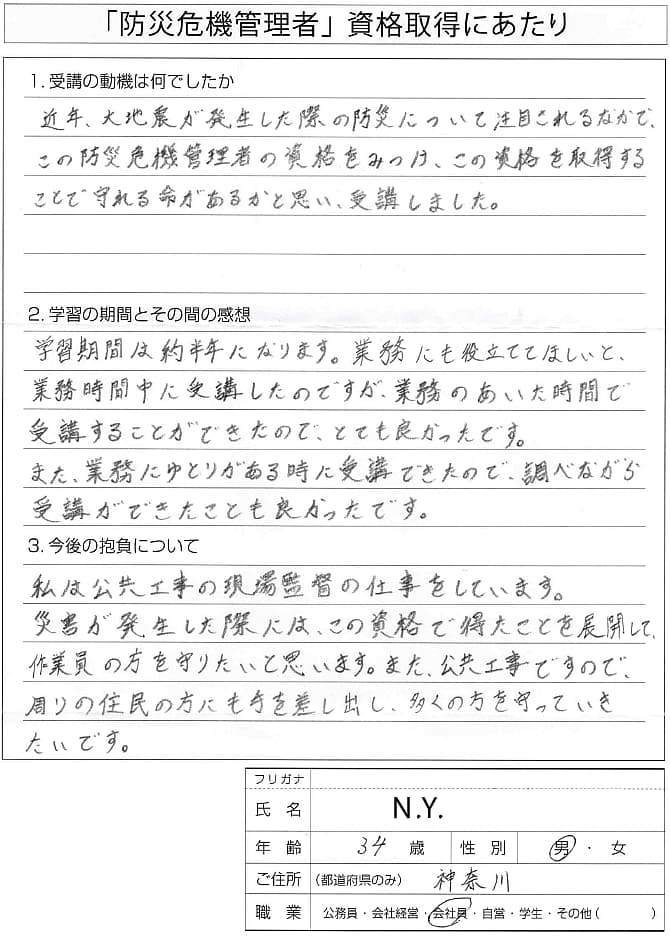 「防災危機管理者」資格取得にあたり
1. 受講の動機は何でしたか
近年、大地震が発生した際の防災について注目されるなかで、
この防災危機管理者の資格をみつけ、この資格を取得する
ことで守れる命があるかと思い、受講しました。
2. 学習の期間とその間の感想
学習期間は約半年になります。業務にも役立ててほしいと、
業務時間中に受講したのですが、業務のあいた時間で
受講することができたので、とても良かったです。
また、業務にゆとりがある時に受講できたので、調べながら
受講ができたことも良かったです。
3. 今後の抱負について
私は公共工事の現場監督の仕事をしています。
災害が発生した際には、この資格で得たことを展開して、
作業員の方を守りたいと思います。また、公共工事ですので、
周りの住民の方にも手を差し出し、多くの方を守っていき
たいです。
フリガナ
氏名 N.Y.
年齢 34 歳 性別 男・女
ご住所 (都道府県のみ) 神奈川
職業 公務員・会社経営・会社員・自営・学生・その他( )